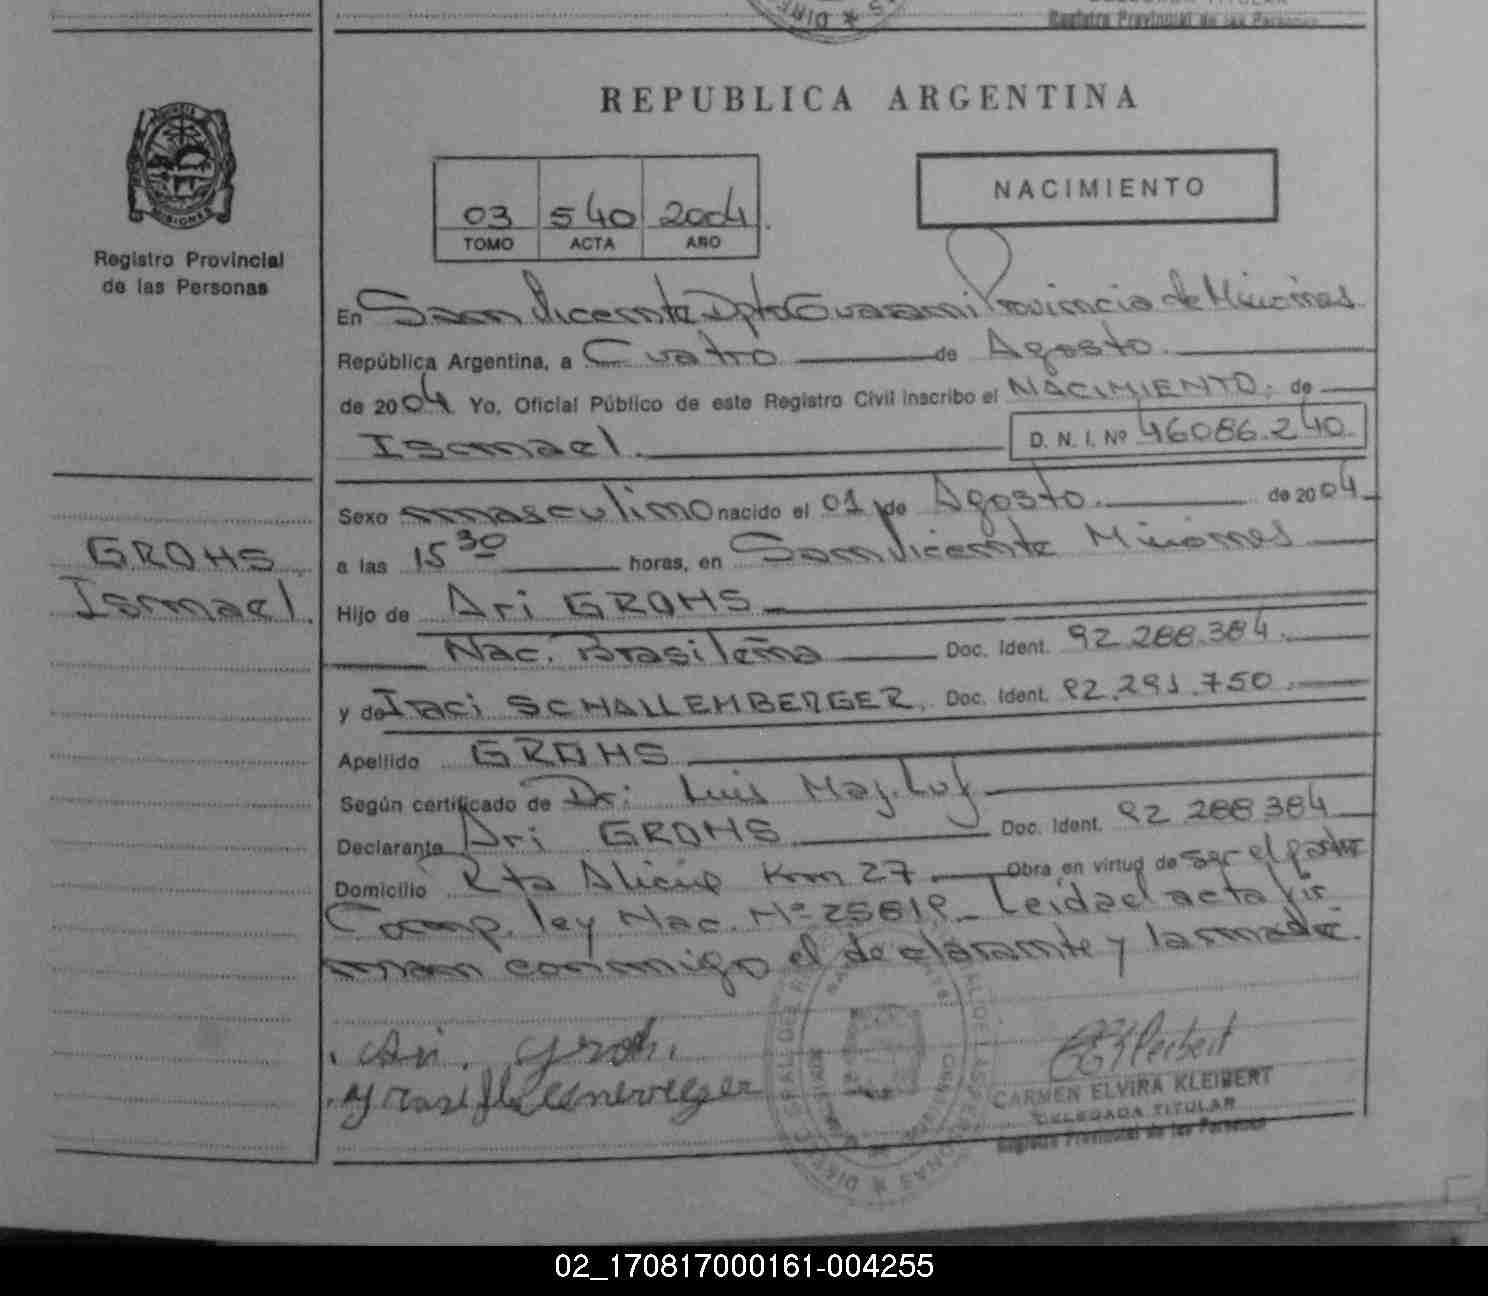 Registro Provincial de las Personas
REPUBLICA ARGENTINA
PROVINCIA
MISIONES
Registro Provincial
de las Personas
03 540 2004
TOMO ACTA AÑO
NACIMIENTO
En San Vicente Dpto Guaraní Provincia de Misiones
República Argentina, a Cuatro de Agosto
de 2004 Yo, Oficial Público de este Registro Civil inscribo el NACIMIENTO, de
Ismael D. N. I. Nº 46086.240
Sexo masculino nacido el 01 de Agosto de 2004
GROHS
Ismael
a las 15 30 horas, en San Vicente Misiones
Hijo de Ari GROHS
Nac. Brasileña Doc. Ident. 92.288.384
y de Iraci SCHALLEMBERGER Doc. Ident. 92.291.750
Apellido GROHS
Según certificado de Dr: Luis Maj.Luf
Declarante Ari GROHS Doc. Ident. 92 288 384
Domicilio Rta Alicia Km 27 Obra en virtud de ser el padre
Comp. ley Nac. Nº 25819 Leida el acta fir
man conmigo el declarante y la madre.
Ari Groh
CARMEN ELVIRA KLEIBERT
DELEGADA TITULAR
Registro Provincial de las Personas
02_170817000161-004255